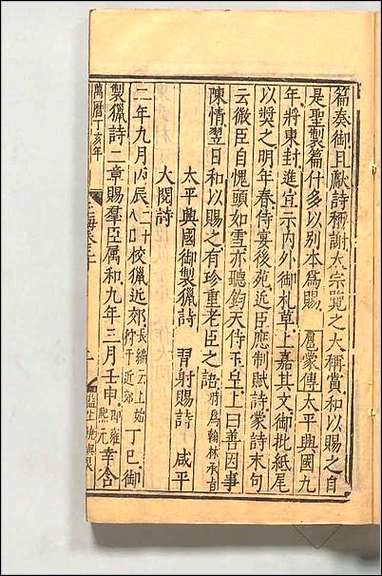 篇奏御且献詩稱謝太宗覽之大稱賞和以賜之自
是聖製篇什多以别本為賜　扈蒙傳太平興國九
年將東封進宜示内外御札草上嘉其文御批紙尾
以奬之明年春侍宴後苑近臣應制賦詩蒙詩末句
云微臣自愧頭如雪亦聽鈞天侍玉皇上曰善因事
陳情翌日和以賜之有珍重老臣之語時為翰林承旨
太平興國御製獵詩　習射賜詩　咸平
大閱詩
二年九月丙辰二十八日校獵近郊長編云上始狩于近郊丁巳御
製獵詩二章賜羣臣属和九年三月壬申即雍熙元幸含
萬曆丁亥年
玉海卷三十
監生